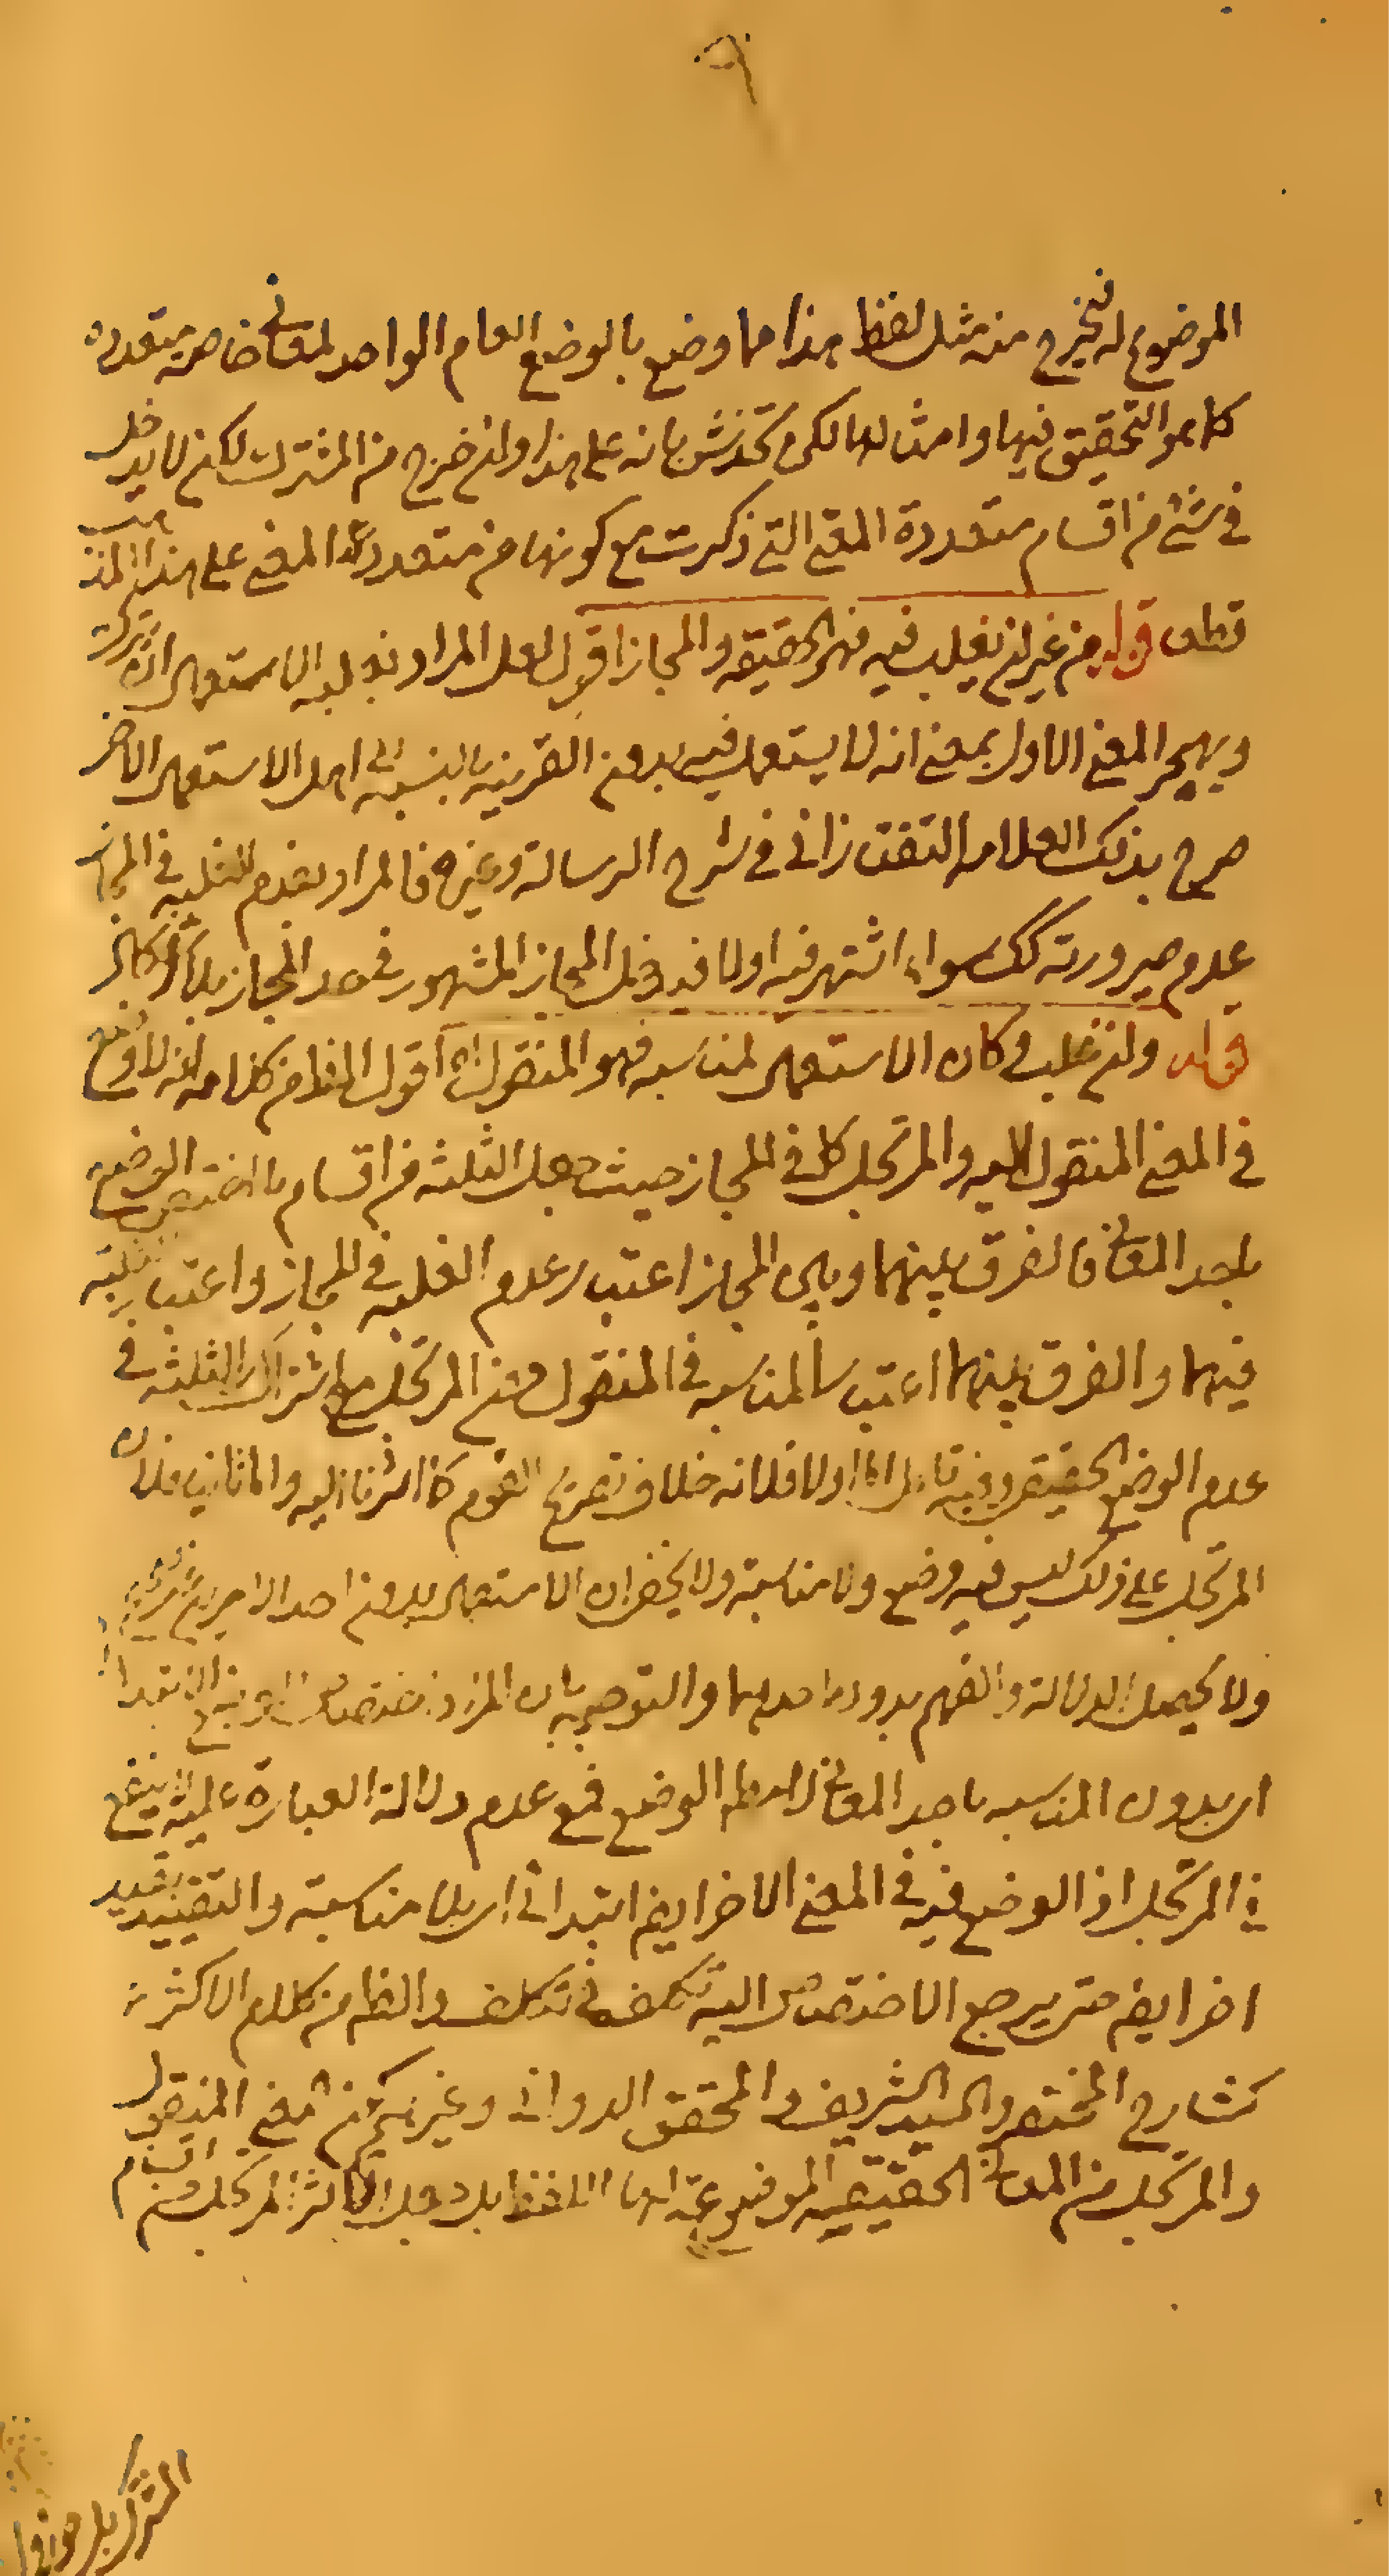 ٩
الموضوع له فيخرج منه مثل لفظ هذا مما وضع بالوضع العام الواحد لمعاني خاصة متعددة
كما هو التحقيق فيها وامثالها لكن يخدش بانه على هذا وان خرج من المشترك لكن لا يدخل
في شئ من اقسام متعددة المعنى التي ذكرت مع كونها من متعددة المعنى على هذا المذهب
قطعا قوله من غير ان يغلب فيه فهو الحقيقة والمجاز اقول لعل المراد بغلبة الاستعمال ان يترك
ويهجر المعنى الاول بمعنى انه لا يستعمل فيه بدون القرينة بالنسبة الى اهل الاستعمال الاخر
صرح بذلك العلامة التفتازاني في شرح الرسالة وغيره فالمراد بعدم الغلبة في المجاز
عدم صيرورته كك سواء اشتهر فيه اولا فيدخل المجاز المشهور في حد المجاز بلا اشكال
قوله وان غلب وكان الاستعمال لمناسبة فهو المنقول اه اقول الظاهر من كلامه انه لا وضع
في المعنى المنقول اليه والمرتجل كما في المجاز حيث جعل الثلثة من اقسام ما اختص الوضع
باحد المعاني فالفرق بينهما وبين المجاز اعتبار عدم الغلبة في المجاز واعتبار الغلبة
فيهما والفرق بينهما اعتبار المناسبة في المنقول دون المرتجل مع اشتراك الثلثة في
عدم الوضع الحقيقي وفيه تامل اما اولا فلانه خلاف تصريح القوم كما اشرنا اليه واما ثانيا فلان
المرتجل على ذلك ليس فيه وضع ولا مناسبة ولا يخفى ان الاستعمال بدون احد الامرين
ولا يحصل الدلالة والفهم بدون احدهما والتوجيه بان المراد اختصاص الوضع الابتدائي
اي بدون المناسبة باحد المعاني لا مطلق الوضع فمع عدم دلالة العبارة عليه لا ينفع
في المرتجل اذ الوضع فيه في المعنى الاخر ايضا ابتدائي اي بلا مناسبة والتقييد بقيد
اخر ايضا حتى يرجع الاختصاص اليه تكلف في تكلف والظاهر من كلام الاكثر
كشارح المختصر والسيد الشريف والمحقق الدواني وغيرهم كون معنى المنقول
والمرتجل من المعاني الحقيقية الموضوعة لها اللفظ بل جعل الاكثر المرتجل من اقسام
المشترك بل هو